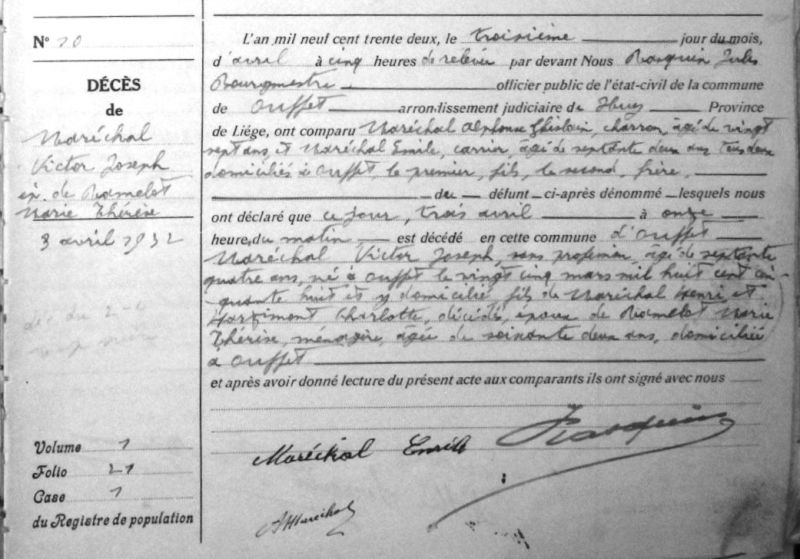 N° 10
DÉCÈS
de
Maréchal
Victor Joseph
ép. de Ramelot
Marie Thérèse
3 avril 1932
Volume 1
Folio 21
Case 1
du Registre de population
L'an mil neuf cent trente deux, le troisième jour du mois,
d'avril à cinq heures de relevée par devant Nous Rasquin Jules
Bourgmestre officier public de l'état-civil de la commune
de Ouffet arrondissement judiciaire de Huy Province
de Liége, ont comparu Maréchal Alphonse Ghislain, charron, âgé de vingt
sept ans, et Maréchal Emile, carrier, âgé de septante deux ans, tous deux
domiciliés à Ouffet, le premier, fils, le second, frère,
du défunt ci-après dénommé lesquels nous
ont déclaré que ce jour, trois avril à onze
heure, du matin est décédé en cette commune d'Ouffet
Maréchal Victor Joseph, sans profession, âgé de septante
quatre ans, né à Ouffet le vingt cinq mars mil huit cent cin-
quante huit et y domicilié, fils de Maréchal Henri, et
Charlotte, décédés, époux de Ramelot Marie
Thérèse, ménagère, âgée de soixante deux ans, domiciliée
à Ouffet
et après avoir donné lecture du présent acte aux comparants ils ont signé avec nous
Maréchal Emile Rasquin
A Maréchal